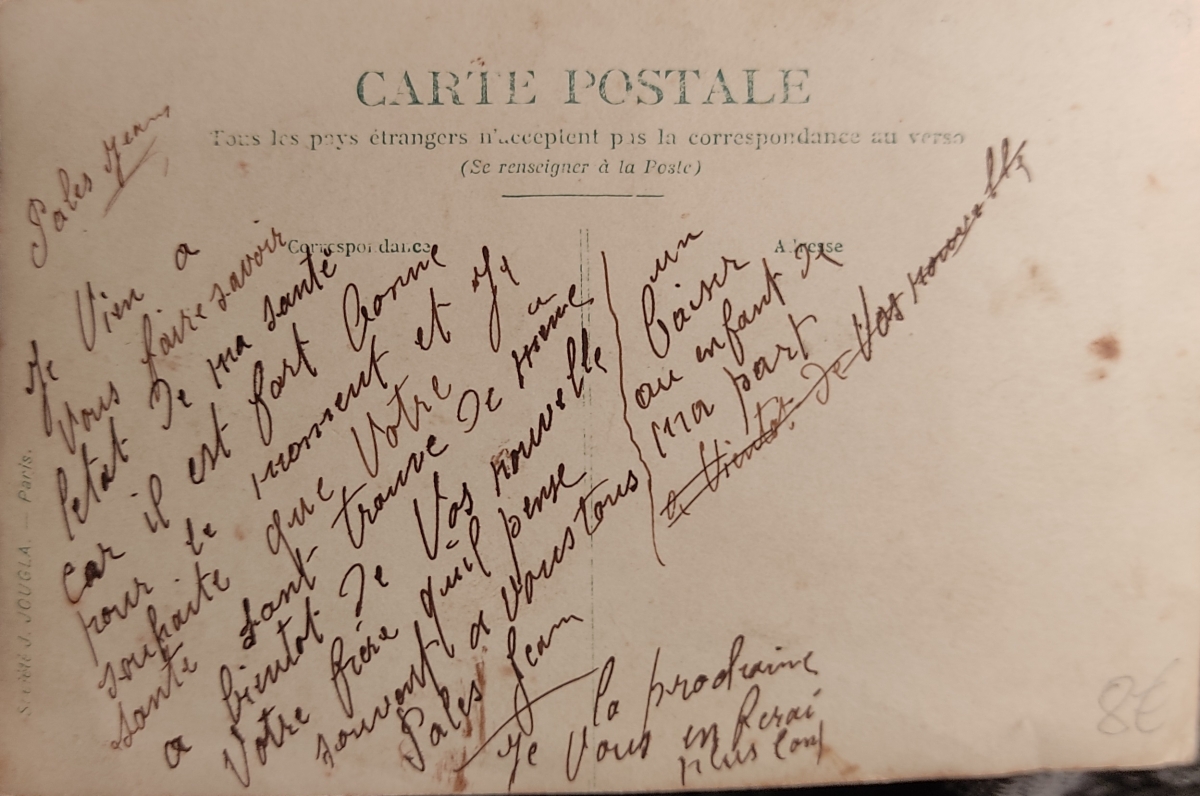 CARTE POSTALE
Tous les pays étrangers n'acceptent pas la correspondance au verso
(Se renseigner à la Poste)
Correspondance
Adresse
Pales Jean
Je Vien a
Vous faire savoir
letat de ma santé
car il est fort bonne
pour le moment et Je
souhaite que Votre
santé sont trouve de même
a bientot de Vos nouvelle
Votre frère quil pense
souvent a Vous tous
Pales Jean
un
baiser
au enfant de
ma part
a bientot de Vos nouvelle
la prochaine
Je Vous en ferai
plus long
J. JOUGLA. — Paris.
8€